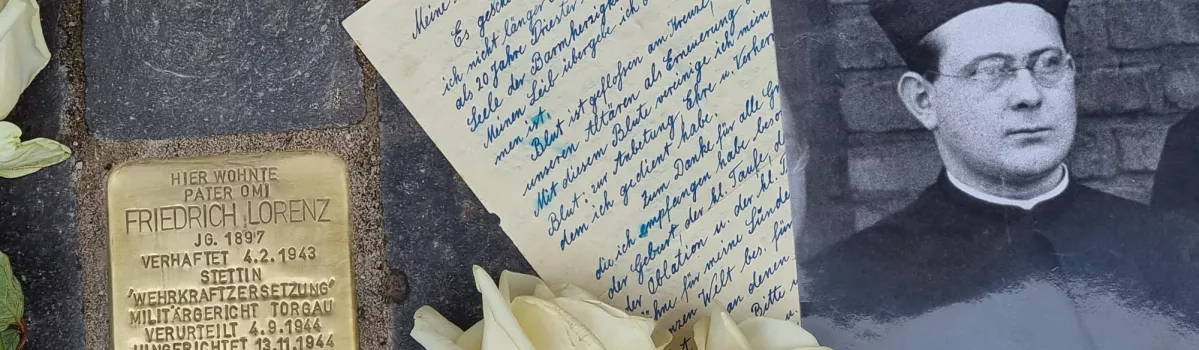 HIER WOHNTE
PATER OMI
FRIEDRICH LORENZ
JG. 1897
VERHAFTET 4.2.1943
STETTIN
'WEHRKRAFTZERSETZUNG'
MILITÄRGERICHT TORGAU
VERURTEILT 4.9.1944
HINGERICHTET 13.11.1944
Meine
Es
ich nicht länger
als 20 Jahre Priester
Seele der Barmherzigk
Meinen Leib übergebe ich
men ist.
Blut ist geflossen am Kreuze,
unseren Altären als Erneuerung
Mit diesem Blute vereinige ich mein
Blut: zur Anbetung, Ehre u.
dem ich gedient habe:
zum Danke für alle
die ich empfangen habe
der Geburt, der hl. Taufe,
der Oblation u. der hl.
für meine Sünde
nzen Welt bes. für
an denen
Bitte u